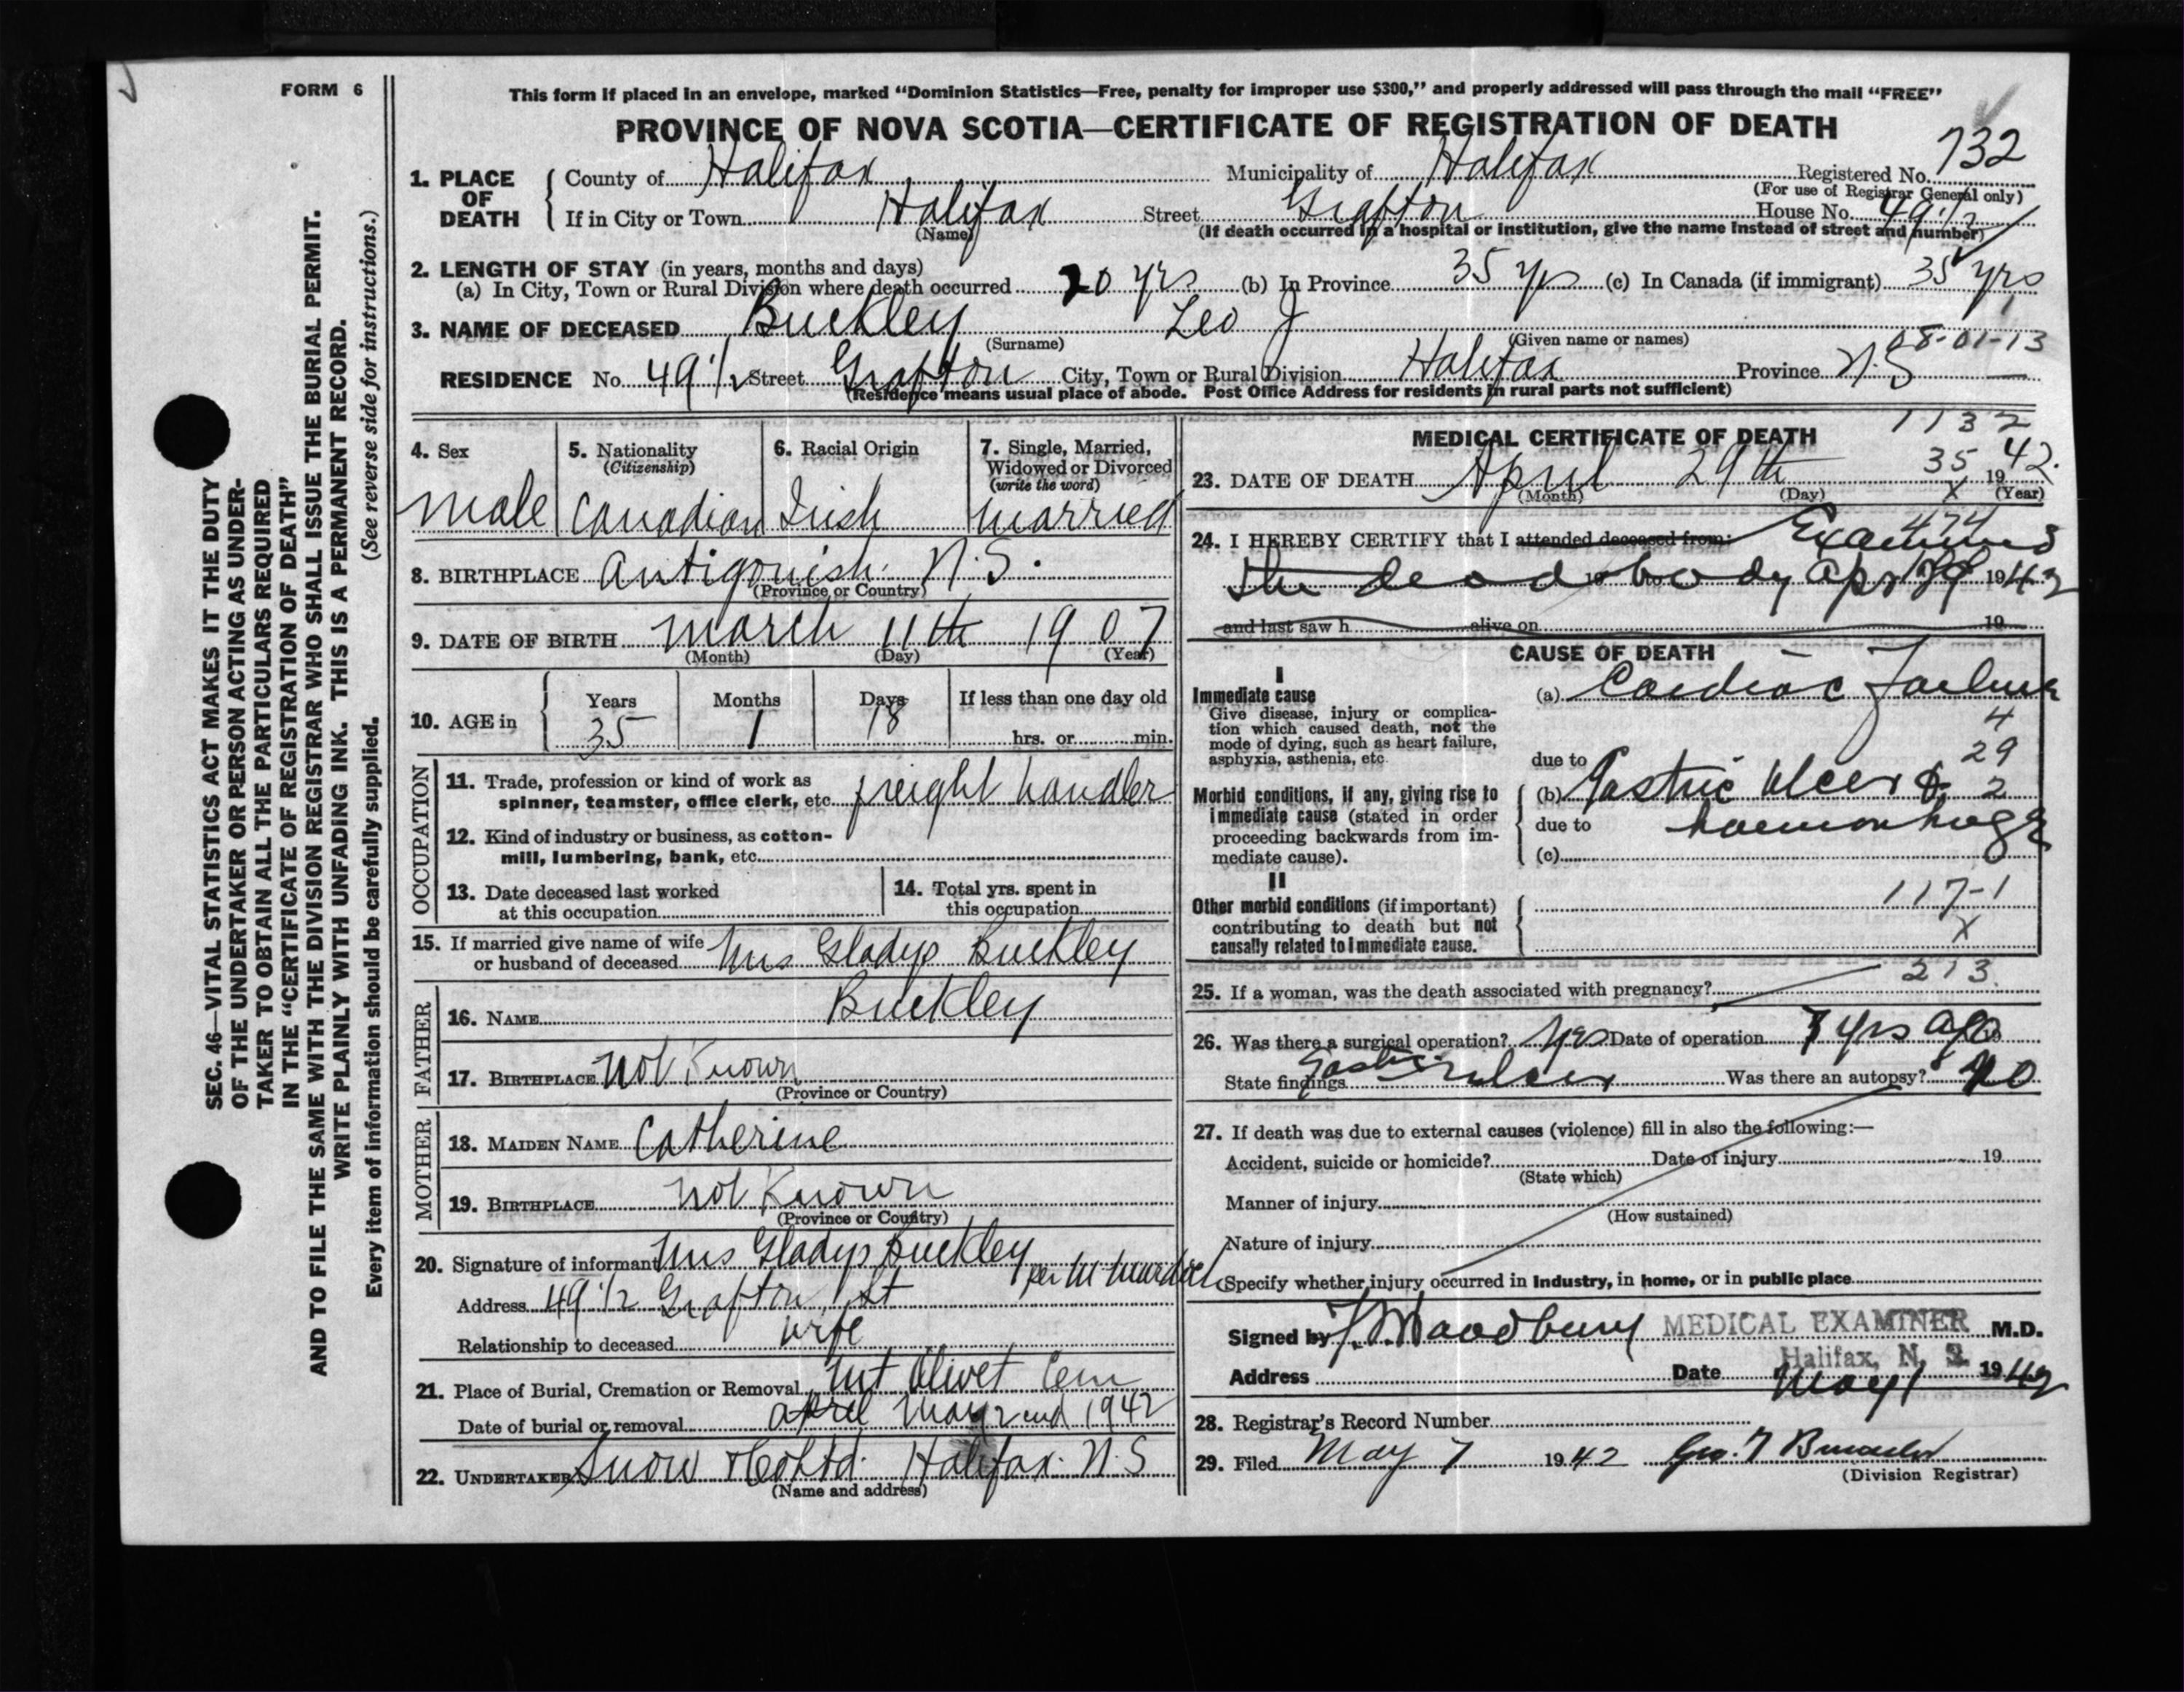 FORM 6
This form if placed in an envelope, marked "Dominion Statistics—Free, penalty for improper use $300," and properly addressed will pass through the mail "FREE"
PROVINCE OF NOVA SCOTIA—CERTIFICATE OF REGISTRATION OF DEATH
732
1. PLACE OF DEATH County of Halifax Municipality of Halifax Registered No.
(For use of Registrar General only)
If in City or Town Halifax Street Grafton House No. 49 1/2
(Name) (If death occurred in a hospital or institution, give the name instead of street and number)
2. LENGTH OF STAY (in years, months and days)
(a) In City, Town or Rural Division where death occurred 20 yrs (b) In Province 35 yrs (c) In Canada (if immigrant) 35 yrs
3. NAME OF DECEASED Buckley Leo J
(Surname) (Given name or names) 08-01-13
RESIDENCE No. 49 1/2 Street Grafton City, Town or Rural Division Halifax Province N.S
(Residence means usual place of abode. Post Office Address for residents in rural parts not sufficient)
4. Sex 5. Nationality 6. Racial Origin 7. Single, Married,
(Citizenship) Widowed or Divorced
(write the word)
male Canadian Irish married
8. BIRTHPLACE Antigonish N.S.
(Province or Country)
9. DATE OF BIRTH March 11th 1907
(Month) (Day) (Year)
10. AGE in Years Months Days If less than one day old
35 1 18 hrs. or min.
OCCUPATION
11. Trade, profession or kind of work as
spinner, teamster, office clerk, etc. freight handler
12. Kind of industry or business, as cotton-
mill, lumbering, bank, etc.
13. Date deceased last worked 14. Total yrs. spent in
at this occupation this occupation
15. If married give name of wife
or husband of deceased Mrs Gladys Buckley
FATHER
16. NAME Buckley
17. BIRTHPLACE Not Known
(Province or Country)
MOTHER
18. MAIDEN NAME Catherine
19. BIRTHPLACE Not Known
(Province or Country)
20. Signature of informant Mrs Gladys Buckley per M Murdoch
Address 49 1/2 Grafton St
Relationship to deceased wife
21. Place of Burial, Cremation or Removal Mt Olivet Cem
Date of burial or removal April May 2nd 1942
22. UNDERTAKER Snow & Co Ltd. Halifax. N.S
(Name and address)
1132
MEDICAL CERTIFICATE OF DEATH
35
23. DATE OF DEATH April 29th 1942.
(Month) (Day) X (Year)
474
24. I HEREBY CERTIFY that I attended deceased from: Examined
the dead body Apr 29 1942
and last saw h alive on 19
CAUSE OF DEATH
I
Immediate cause (a) Cardiac Failure
Give disease, injury or complica-
tion which caused death, not the
mode of dying, such as heart failure,
asphyxia, asthenia, etc.
4
29
due to
Morbid conditions, if any, giving rise to (b) Gastric Ulcer & 2
immediate cause (stated in order due to haemorrhage
proceeding backwards from im-
mediate cause). (c)
II
Other morbid conditions (if important) 117-1
contributing to death but not
causally related to immediate cause. X
213
25. If a woman, was the death associated with pregnancy?
26. Was there a surgical operation? Yes Date of operation 7 yrs ago 19
State findings Gastric ulcer Was there an autopsy? No
27. If death was due to external causes (violence) fill in also the following:—
Accident, suicide or homicide? Date of injury 19
(State which)
Manner of injury
(How sustained)
Nature of injury
Specify whether injury occurred in industry, in home, or in public place
Signed by Woodbury MEDICAL EXAMINER M.D.
Halifax, N. S.
Address Date May 1 1942
28. Registrar's Record Number
29. Filed May 7 1942
(Division Registrar)
SEC. 46—VITAL STATISTICS ACT MAKES IT THE DUTY
OF THE UNDERTAKER OR PERSON ACTING AS UNDER-
TAKER TO OBTAIN ALL THE PARTICULARS REQUIRED
IN THE "CERTIFICATE OF REGISTRATION OF DEATH"
AND TO FILE THE SAME WITH THE DIVISION REGISTRAR WHO SHALL ISSUE THE BURIAL PERMIT.
WRITE PLAINLY WITH UNFADING INK. THIS IS A PERMANENT RECORD.
Every item of information should be carefully supplied. (See reverse side for instructions.)